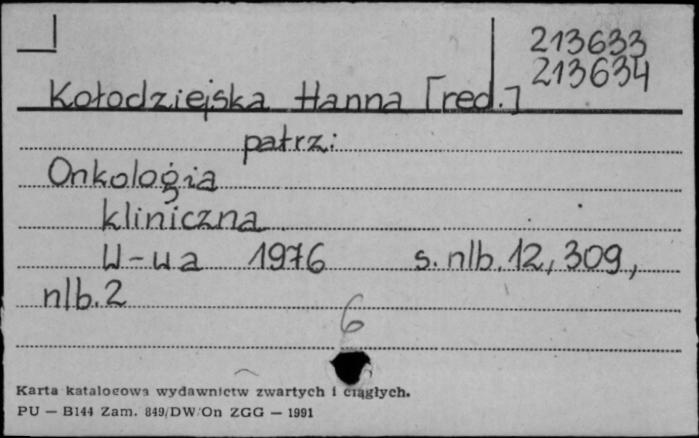 213633
213634
Kołodziejska Hanna [red.]
patrz:
Onkologia
kliniczna
W-wa 1976 s. nlb. 12, 309,
nlb. 2
6
Karta katalogowa wydawnictw zwartych i ciągłych.
PU — B144 Zam. 849/DW/On ZGG — 1991